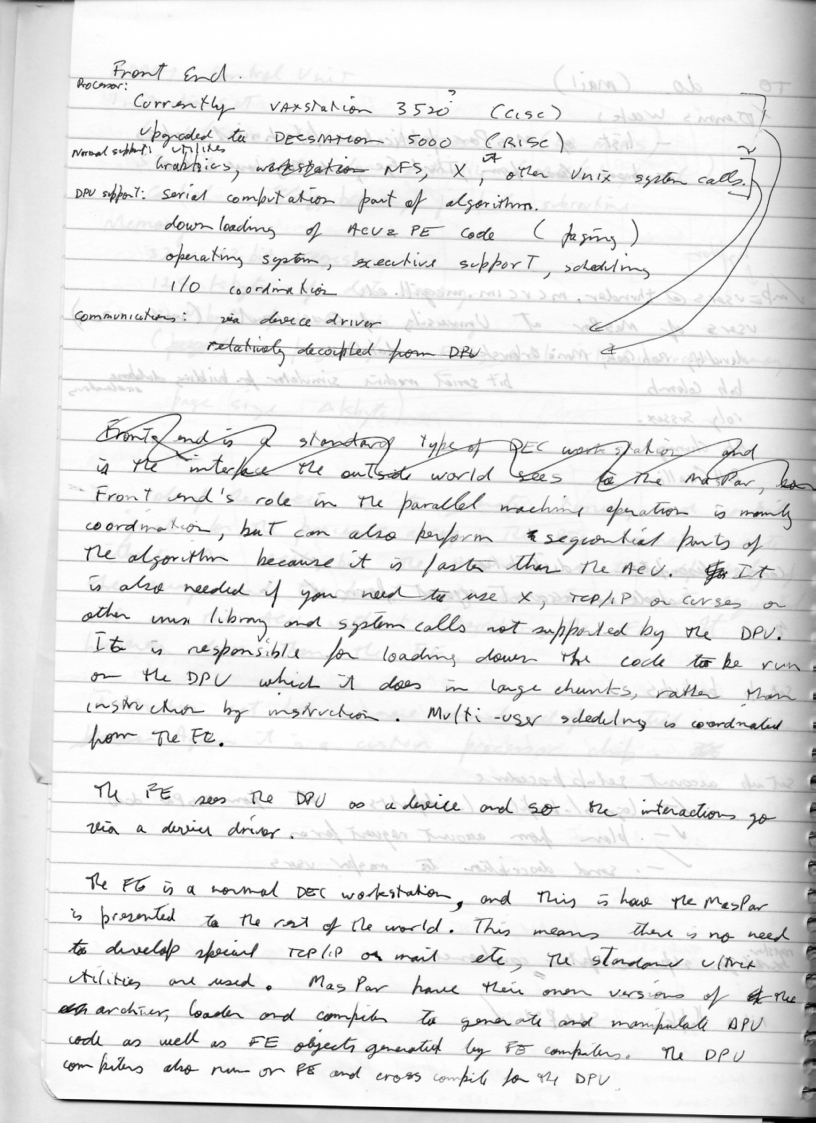 Front End.
Processor:
Currently VAXstation 3520? (CISC)
Upgraded to DECStation 5000 (RISC)
Normal support: utilities
Graphics, workstation NFS, X, other Unix system calls.
DPU support: serial computation part of algorithm.
downloading of ACU & PE code (paging)
operating system, executive support, scheduling
I/O coordination
Communications: via device driver
relatively decoupled from DPU
Front end is a standard type of DEC workstation and
is the interface the outside world sees to the MasPar,
Front end's role in the parallel machine operation is mainly
coordination, but can also perform sequential parts of
the algorithm because it is faster than the ACU. It
is also needed if you need to use X, TCP/IP or curses or
other unix library and system calls not supported by the DPU.
It is responsible for loading down the code to be run
on the DPU which it does in large chunks, rather than
instruction by instruction. Multi-user scheduling is coordinated
from the FE.
The FE sees the DPU as a device and so the interactions go
via a device driver.
The FE is a normal DEC workstation, and this is how the MasPar
is presented to the rest of the world. This means there is no need
to develop special TCP/IP or mail etc, the standard Ultrix
utilities are used. MasPar have their own versions of the
archiver, loader and compiler to generate and manipulate DPU
code as well as FE objects generated by FE compilers. The DPU
compilers also run on FE and cross compile for the DPU